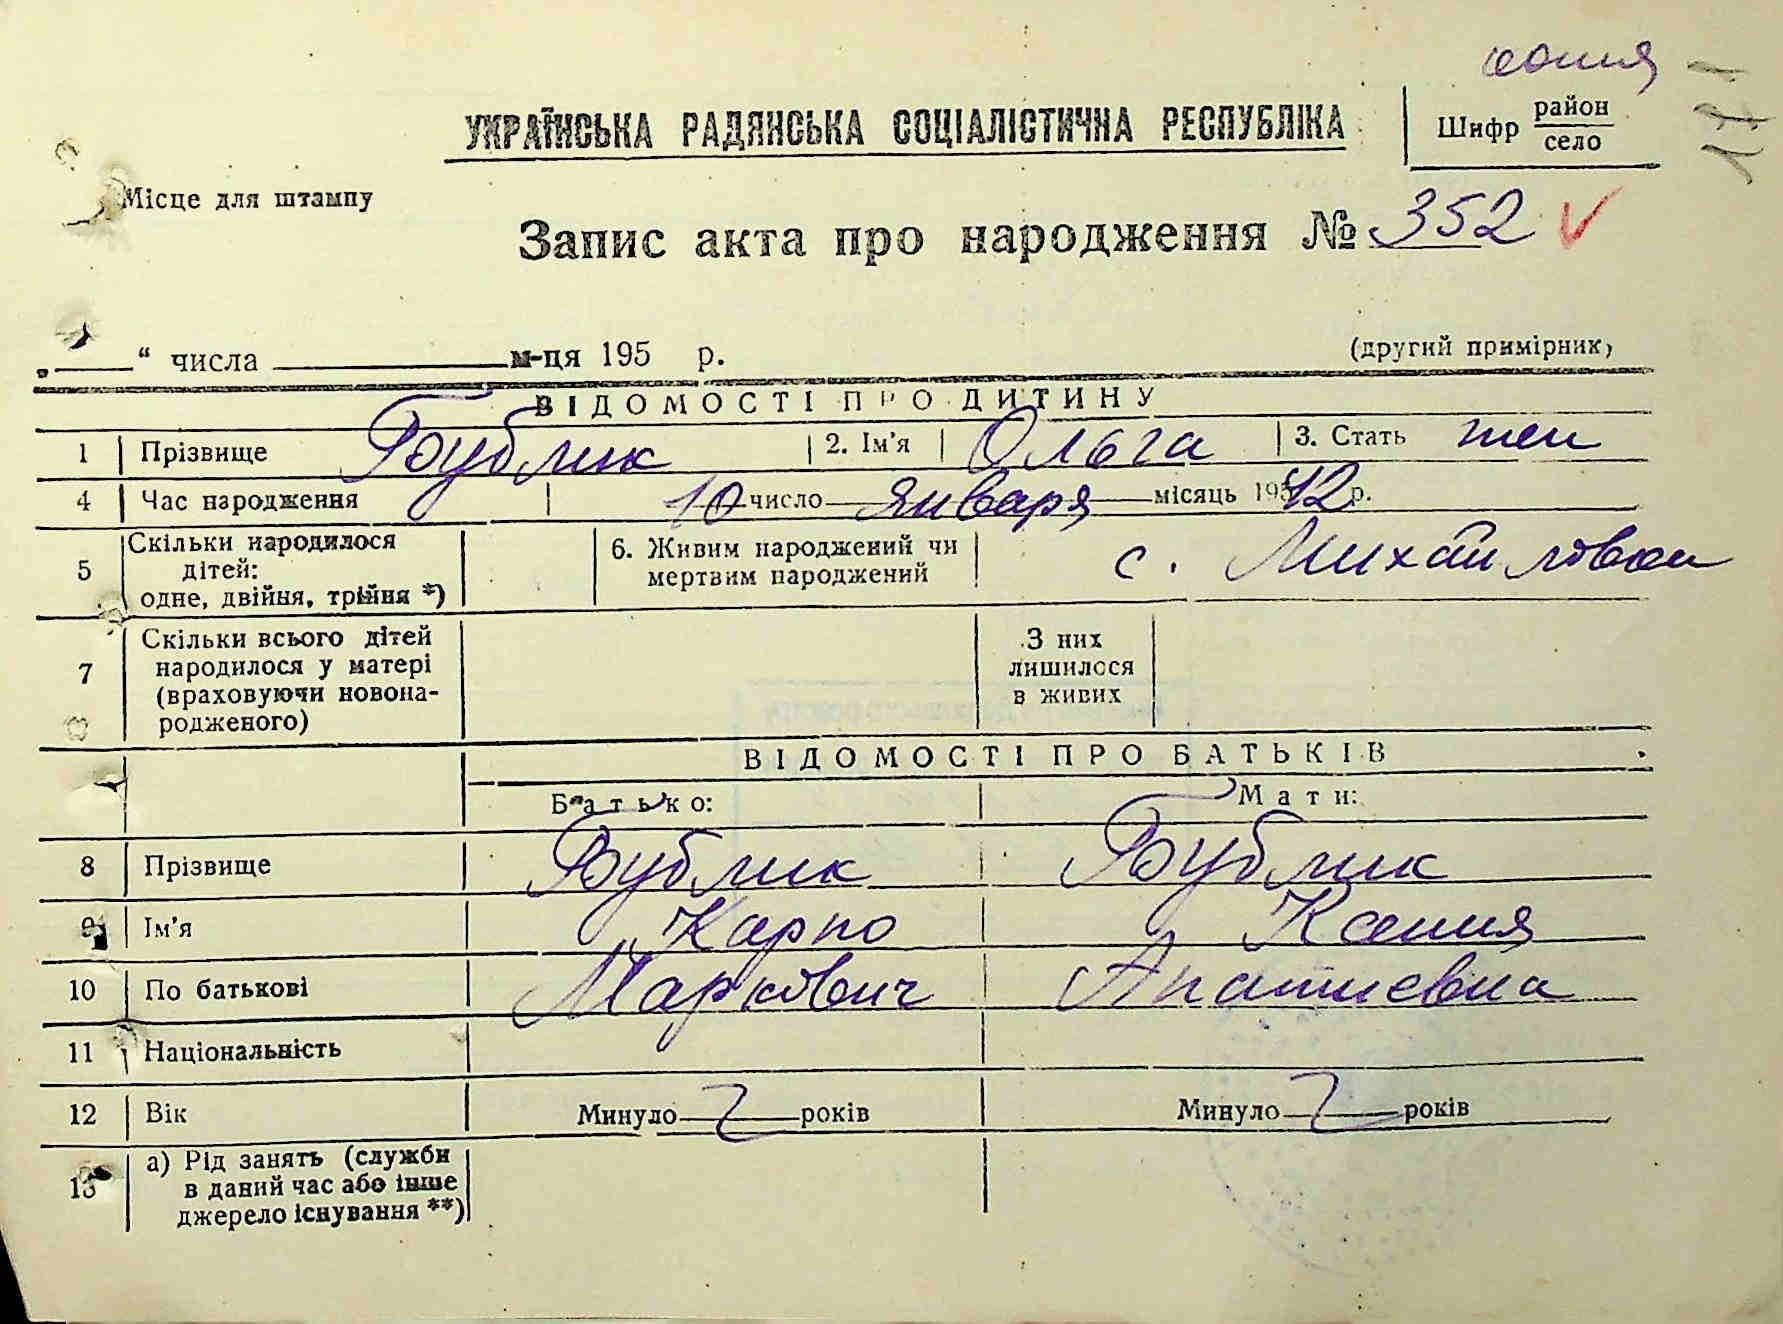 копия
УКРАЇНСЬКА РАДЯНСЬКА СОЦІАЛІСТИЧНА РЕСПУБЛІКА
Шифр район
село
171
Місце для штампу
Запис акта про народження № 352
„ “ числа м-ця 195 р.
(другий примірник)
ВІДОМОСТІ ПРО ДИТИНУ
1 Прізвище Бублик 2. Ім'я Ольга 3. Стать жен
4 Час народження 10 число января місяць 1942 р.
5 Скільки народилося дітей: одне, двійня, трійня *) 6. Живим народжений чи мертвим народжений с. Михайловка
7 Скільки всього дітей народилося у матері (враховуючи новонародженого) З них лишилося в живих
ВІДОМОСТІ ПРО БАТЬКІВ
Батько: Мати:
8 Прізвище Бублик Бублик
9 Ім'я Карпо Ксения
10 По батькові Маркович Ипатиевна
11 Національність
12 Вік Минуло років Минуло років
13 а) Рід занять (служби в даний час або інше джерело існування **)